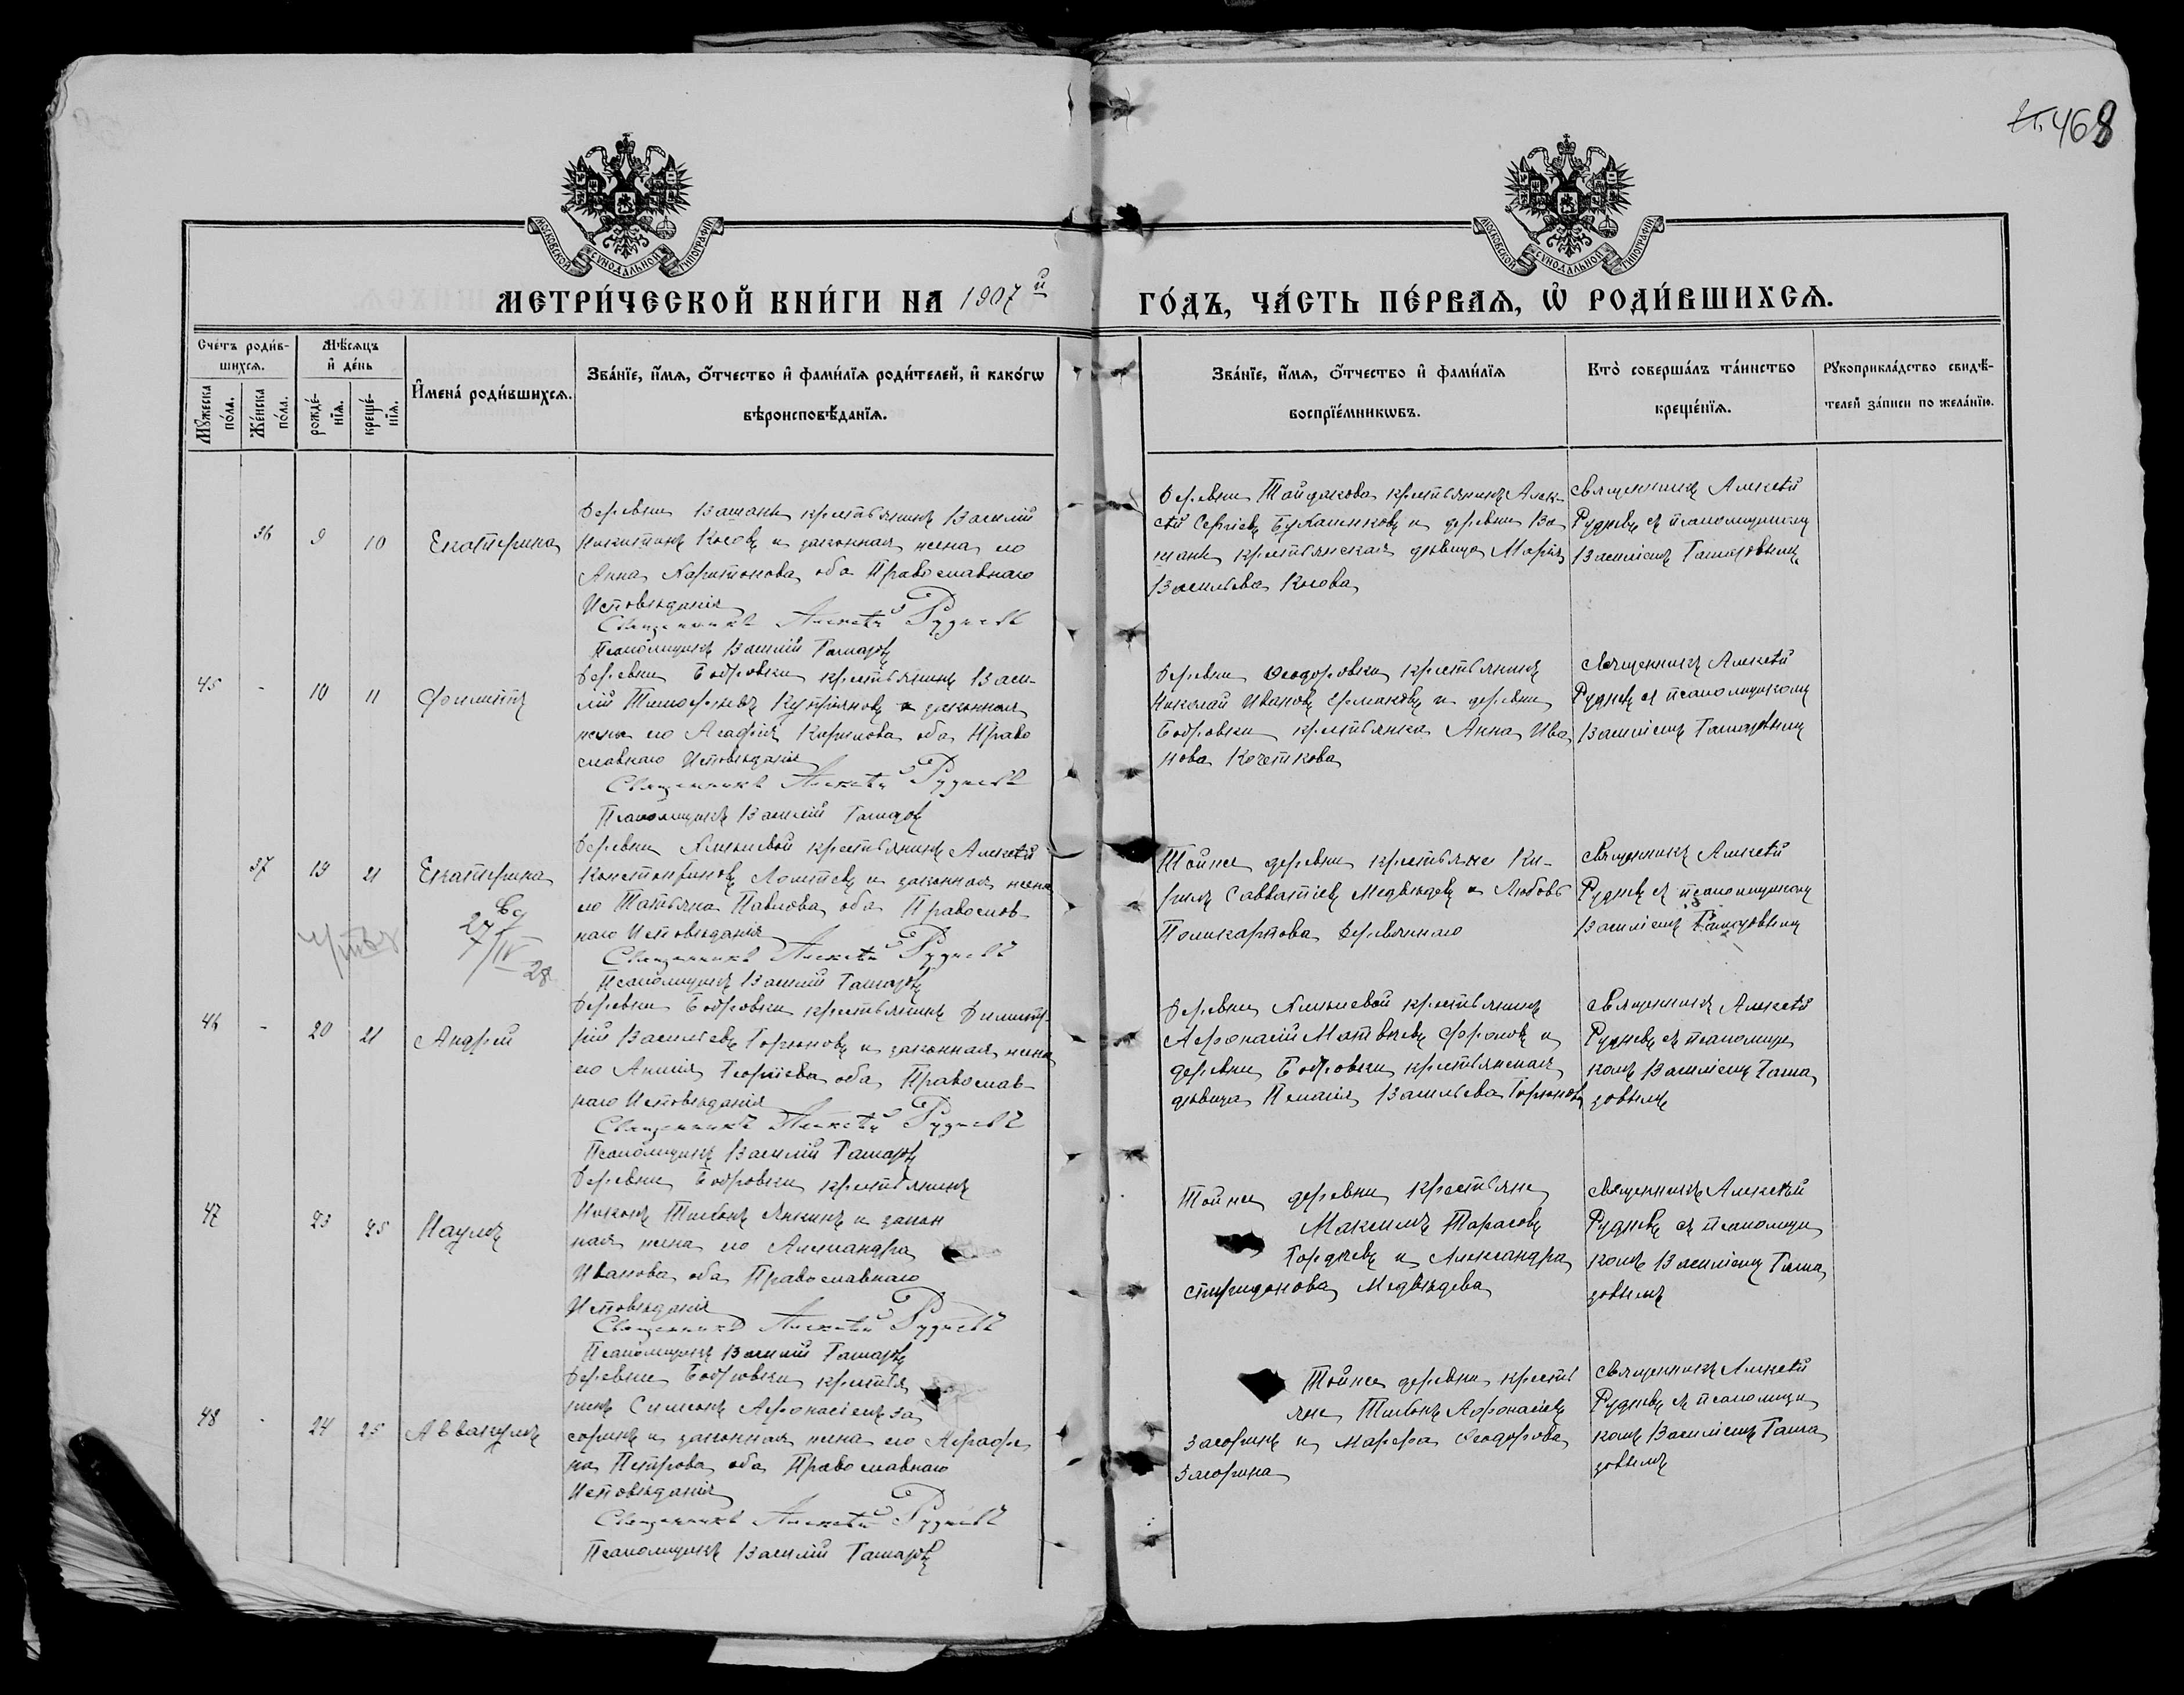 468
МОСКОВСКОЙ СУНОДАЛЬНОЙ ТИПОГРАФІИ
МОСКОВСКОЙ СУНОДАЛЬНОЙ ТИПОГРАФІИ
МЕТРИ́ЧЕСКОЙ КНИ́ГИ НА 1907й
ГО́ДЪ, ЧА́СТЬ ПЕ́РВАѦ, Ѡ҆ РОДИ́ВШИХСѦ.
Сче́тъ роди́в-
шихсѧ.
Мꙋ́жеска по́ла.
Же́нска по́ла.
Мѣ́сѧцъ
и҆ де́нь
рожде́-
нїѧ.
креще́-
нїѧ.
И҆мена̀ роди́вшихсѧ.
Зва́нїе, и҆́мѧ, ѻ҆́тчество и҆ фами́лїѧ роди́телей, и҆ како́гѡ
вѣроисповѣ́данїѧ.
Зва́нїе, и҆́мѧ, ѻ҆́тчество и҆ фами́лїѧ
воспрїе́мникѡвъ.
Кто̀ соверша́лъ та́инство
креще́нїѧ.
Рꙋкоприкла́дство свидѣ́-
телей за́писи по жела́нїю.
36 9 10 Екатерина
Деревни Вашани крестьянинъ Василій
Никитинъ Косовъ и законная жена его
Анна Харитонова, оба Православнаго
Исповѣданія
Священникъ Алексѣй Рудневъ
Псаломщикъ Василій Гамазовъ
Деревни Тайдакова крестьянинъ Алек-
сѣй Сергіевъ Букашенковъ и деревни Ва
шани крестьянская дѣвица Марія
Васильева Косова
Священникъ Алексѣй
Рудневъ съ псаломщикомъ
Василіемъ Гамазовымъ
45 - 10 11 Филиппъ
Деревни Бобровки крестьянинъ Васи-
лій Тимофеевъ Купріяновъ и законная
жена его Агафія Карпова, оба Право
славнаго Исповѣданія
Священникъ Алексѣй Рудневъ
Псаломщикъ Василій Гамазовъ
Деревни Ѳеодоровки крестьянинъ
Николай Ивановъ Ермаковъ и деревни
Бобровки крестьянка Анна Ива
нова Кочеткова
Священникъ Алексѣй
Рудневъ съ псаломщикомъ
Василіемъ Гамазовымъ
37 19 21 Екатерина
27/IV 28
Деревни крестьянинъ Алексѣй
Константиновъ и законная жена
его Татьяна Павлова, оба Православ-
наго Исповѣданія
Священникъ Алексѣй Рудневъ
Псаломщикъ Василій Гамазовъ
Той же деревни крестьяне Ки-
рилъ Савватіевъ Медвѣдевъ и Любовь
Поликарпова
Священникъ Алексѣй
Рудневъ съ псаломщикомъ
Василіемъ Гамазовымъ
46 - 20 21 Андрей
Деревни Бобровки крестьянинъ Димитр-
рій Васильевъ Горюновъ и законная жена
его Георгіева, оба Православ-
наго Исповѣданія
Священникъ Алексѣй Рудневъ
Псаломщикъ Василій Гамазовъ
Деревни крестьянинъ
Афонасій Матвѣевъ и
деревни Бобровки крестьянская
дѣвица Васильева Горюнова
Священникъ Алексѣй
Рудневъ съ псаломщи
комъ Василіемъ Гама
зовымъ
47 23 25 Наумъ
Деревни Бобровки крестьянинъ
Никонъ и закон
ная жена его Александра
Иванова, оба Православнаго
Исповѣданія
Священникъ Алексѣй Рудневъ
Псаломщикъ Василій Гамазовъ
Той же деревни крестьяне
Максимъ Тарасовъ
Гордѣевъ и Александра
Спиридонова Медвѣдева
Священникъ Алексѣй
Рудневъ съ псаломщи
комъ Василіемъ Гама
зовымъ
48 - 24 25 Аввакумъ
Деревни Бобровки крестья
нинъ Симеонъ Афонасіевъ За
горинъ и законная жена его Аграфе
на Петрова, оба Православнаго
Исповѣданія
Священникъ Алексѣй Рудневъ
Псаломщикъ Василій Гамазовъ
Той же деревни кресть
яне Афонасіевъ
Загоринъ и Марфа Ѳеодорова
Загорина
Священникъ Алексѣй
Рудневъ съ псаломщи
комъ Василіемъ Гама
зовымъ